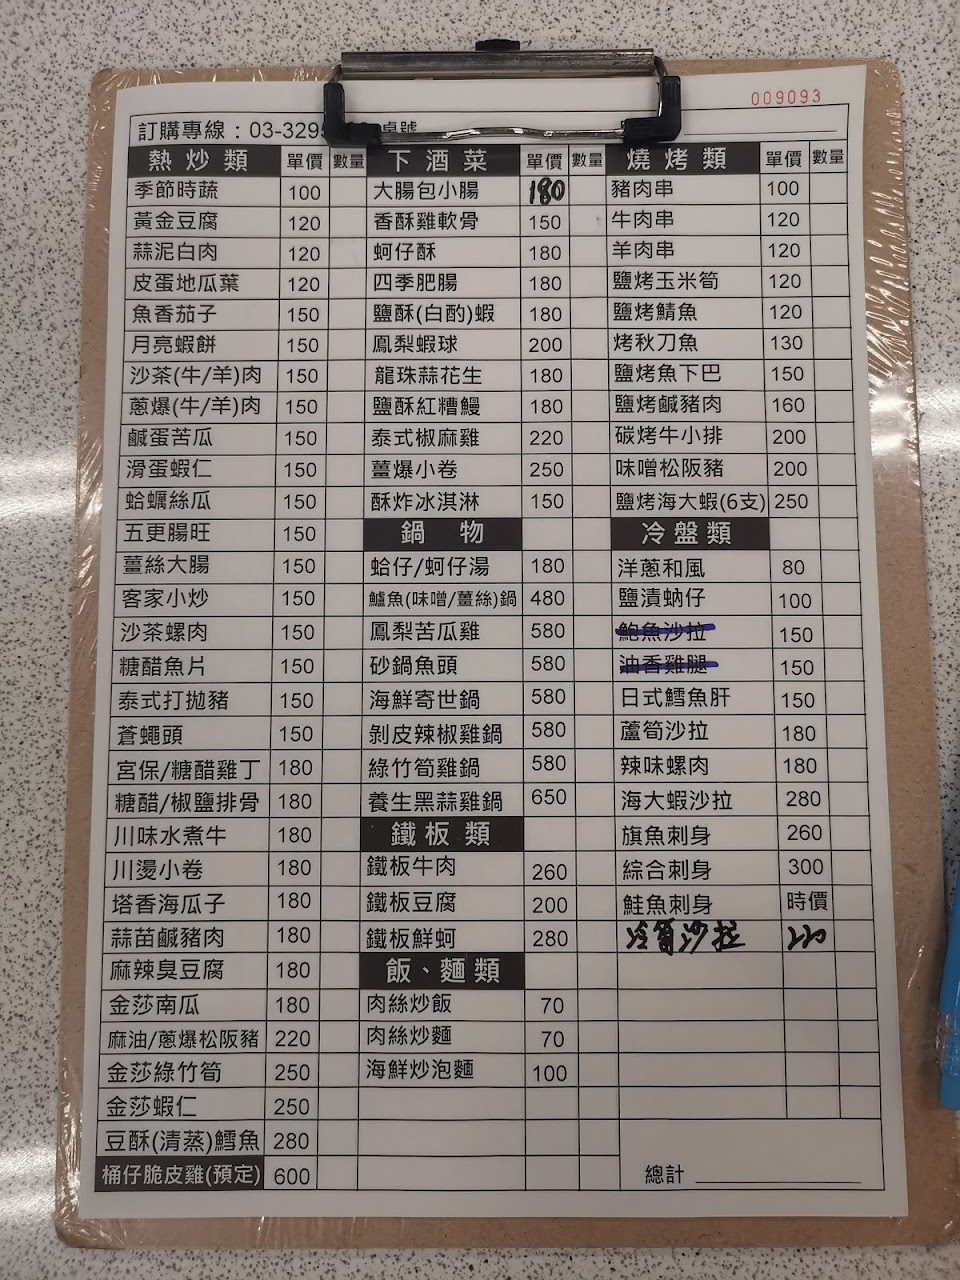 009093
訂購專線：03-3295 桌號
熱炒類 單價 數量 下酒菜 單價 數量 燒烤類 單價 數量
季節時蔬 100 大腸包小腸 180 豬肉串 100
黃金豆腐 120 香酥雞軟骨 150 牛肉串 120
蒜泥白肉 120 蚵仔酥 180 羊肉串 120
皮蛋地瓜葉 120 四季肥腸 180 鹽烤玉米筍 120
魚香茄子 150 鹽酥(白酌)蝦 180 鹽烤鯖魚 120
月亮蝦餅 150 鳳梨蝦球 200 烤秋刀魚 130
沙茶(牛/羊)肉 150 龍珠蒜花生 180 鹽烤魚下巴 150
蔥爆(牛/羊)肉 150 鹽酥紅糟鰻 180 鹽烤鹹豬肉 160
鹹蛋苦瓜 150 泰式椒麻雞 220 碳烤牛小排 200
滑蛋蝦仁 150 薑爆小卷 250 味噌松阪豬 200
蛤蠣絲瓜 150 酥炸冰淇淋 150 鹽烤海大蝦(6支) 250
五更腸旺 150 鍋物 冷盤類
薑絲大腸 150 蛤仔/蚵仔湯 180 洋蔥和風 80
客家小炒 150 鱸魚(味噌/薑絲)鍋 480 鹽漬蚋仔 100
沙茶螺肉 150 鳳梨苦瓜雞 580 鮑魚沙拉 150
糖醋魚片 150 砂鍋魚頭 580 油香雞腿 150
泰式打拋豬 150 海鮮寄世鍋 580 日式鱈魚肝 150
蒼蠅頭 150 剝皮辣椒雞鍋 580 蘆筍沙拉 180
宮保/糖醋雞丁 180 綠竹筍雞鍋 580 辣味螺肉 180
糖醋/椒鹽排骨 180 養生黑蒜雞鍋 650 海大蝦沙拉 280
川味水煮牛 180 鐵板類 旗魚刺身 260
川燙小卷 180 鐵板牛肉 260 綜合刺身 300
塔香海瓜子 180 鐵板豆腐 200 鮭魚刺身 時價
蒜苗鹹豬肉 180 鐵板鮮蚵 280 冷筍沙拉 220
麻辣臭豆腐 180 飯、麵類
金莎南瓜 180 肉絲炒飯 70
麻油/蔥爆松阪豬 220 肉絲炒麵 70
金莎綠竹筍 250 海鮮炒泡麵 100
金莎蝦仁 250
豆酥(清蒸)鱈魚 280
桶仔脆皮雞(預定) 600 總計